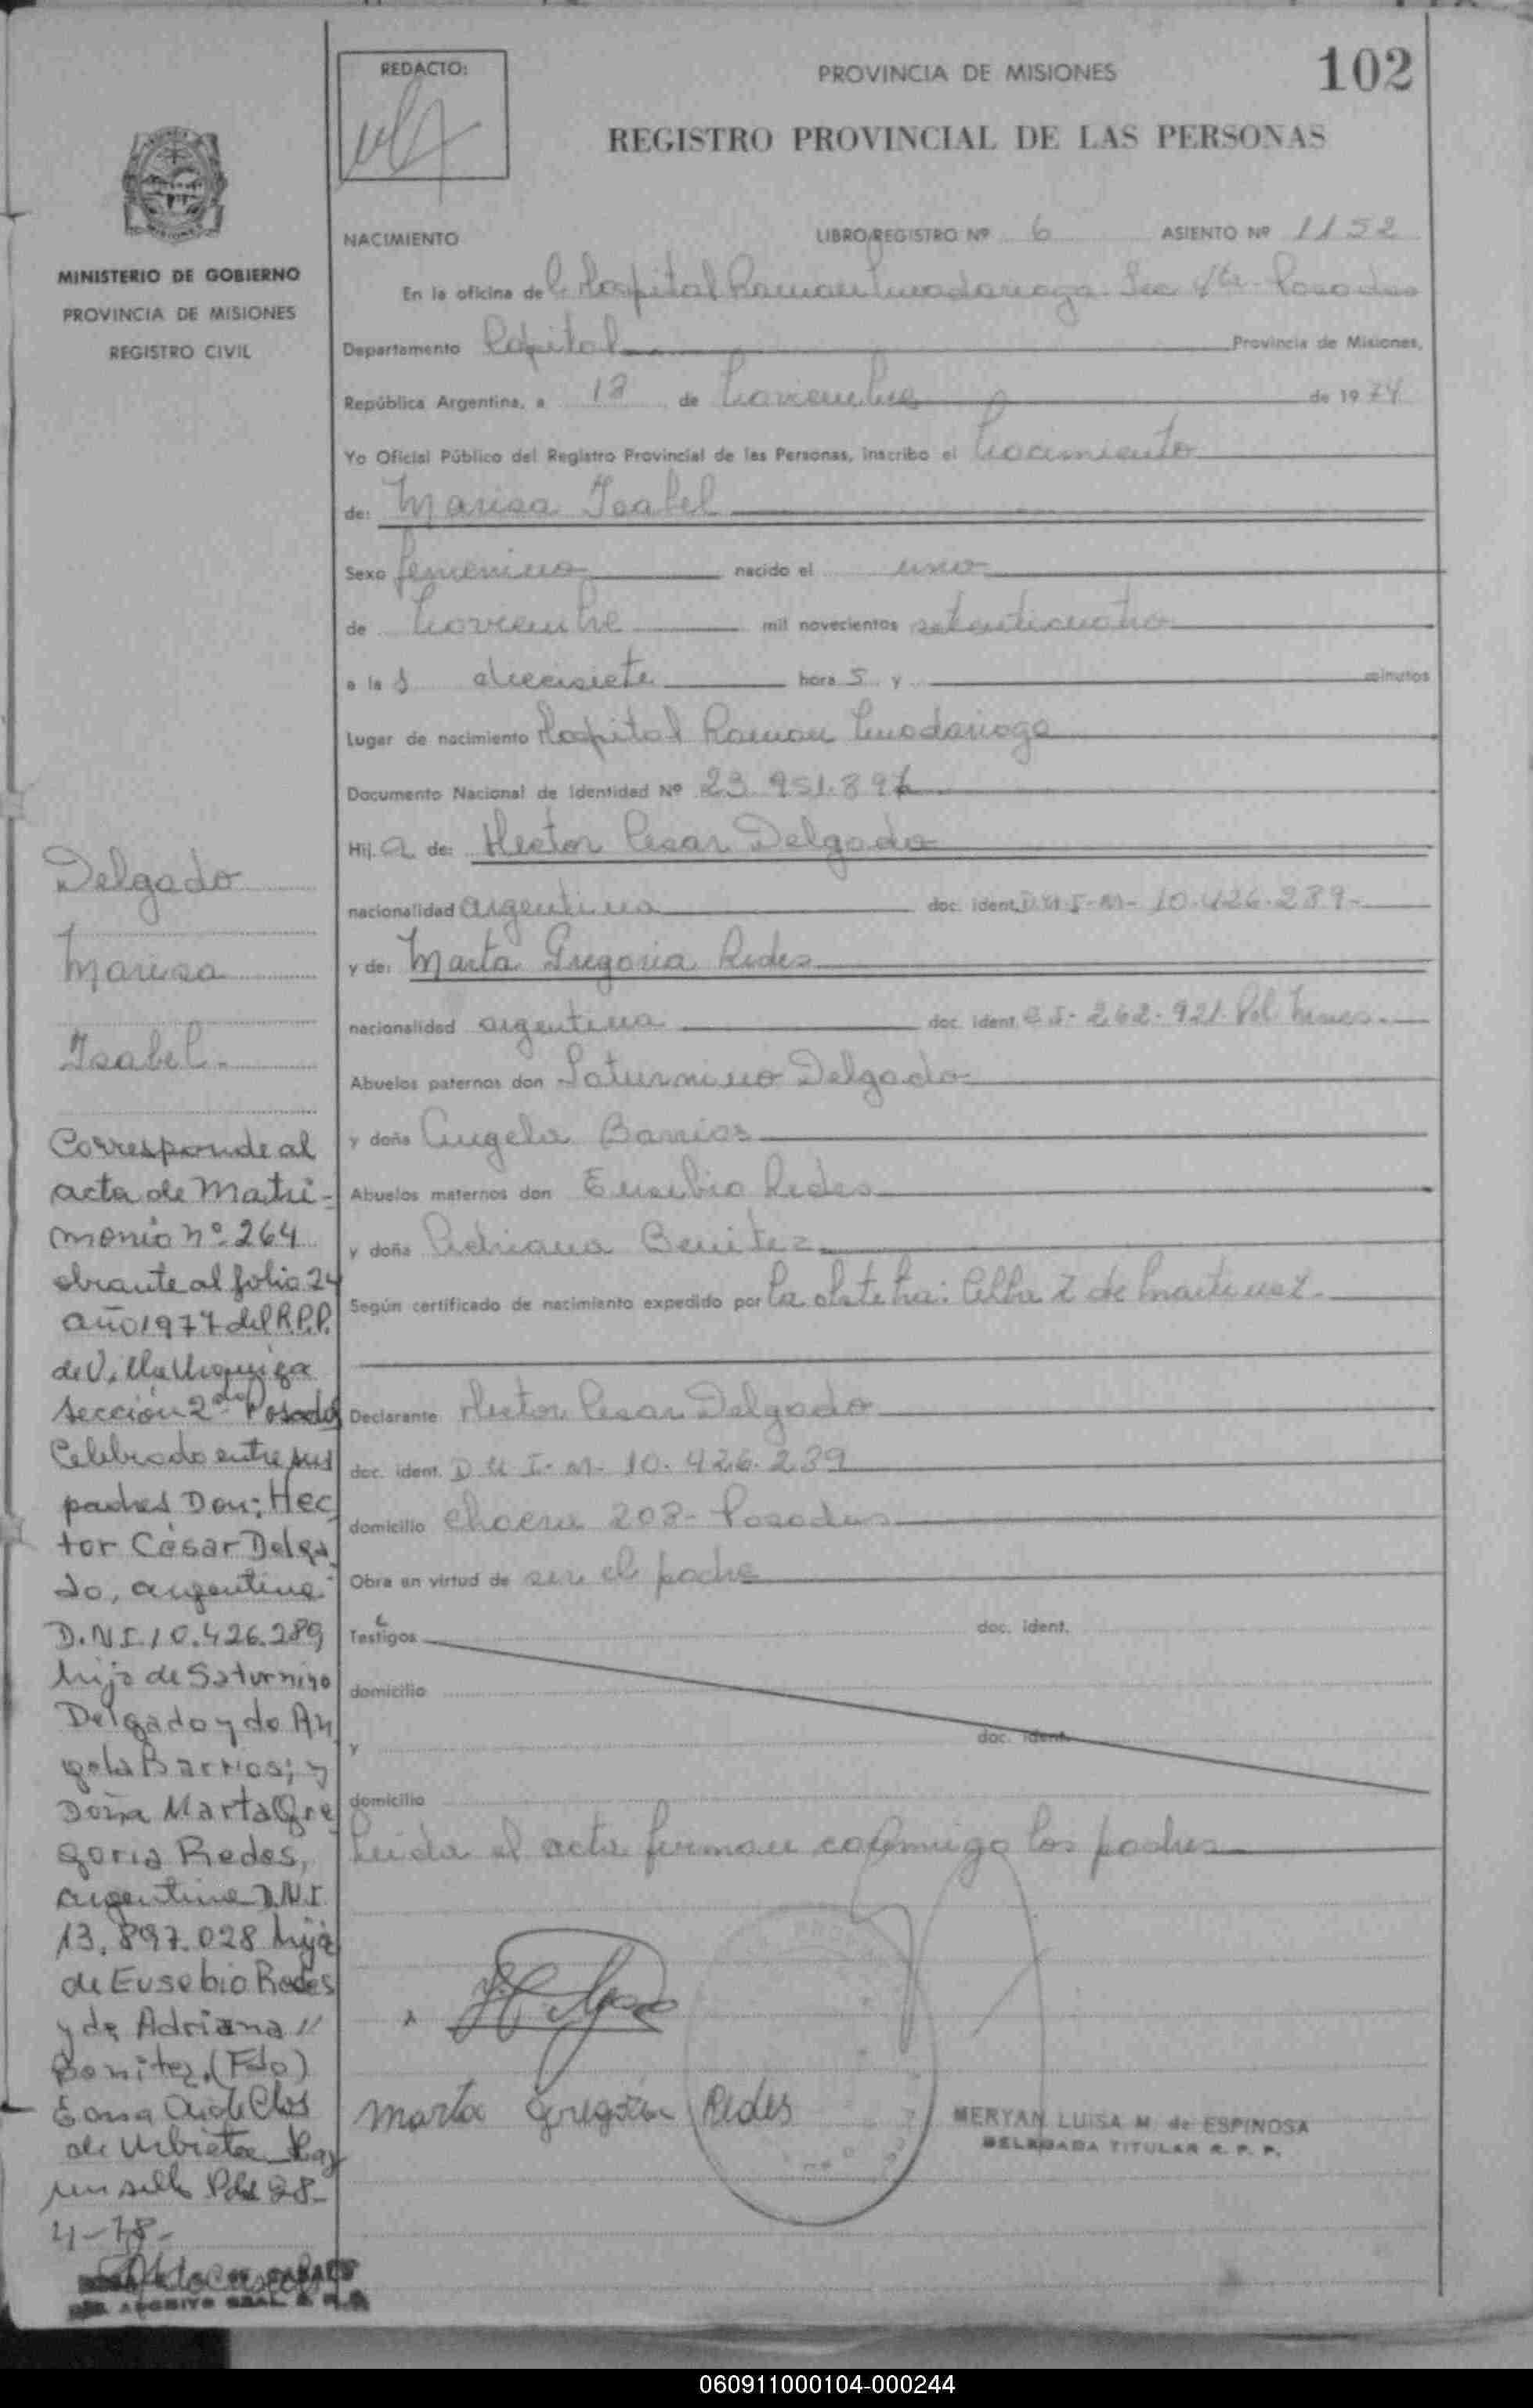 REDACTO:
PROVINCIA DE MISIONES
102
REGISTRO PROVINCIAL DE LAS PERSONAS
MINISTERIO DE GOBIERNO
PROVINCIA DE MISIONES
REGISTRO CIVIL
NACIMIENTO LIBRO/REGISTRO Nº 6 ASIENTO Nº 1152
En la oficina del Hospital Ramon Madariaga Sec 4ta Posadas
Departamento Capital Provincia de Misiones,
República Argentina, a 18 de Noviembre de 1974
Yo Oficial Público del Registro Provincial de las Personas, inscribo el Nacimiento
de: Marisa Isabel
Sexo femenino nacido el uno
de Noviembre mil novecientos setenticuatro
a las diecisiete horas y minutos
Lugar de nacimiento Hospital Ramon Madariaga
Documento Nacional de Identidad Nº 23.951.897
Hija de: Hector Cesar Delgado
nacionalidad argentina doc. ident. D.N.I-M- 10.426.289-
y de: Marta Gregoria Redes
nacionalidad argentina doc. ident. C.I- 262.921- Pol. Mnes.-
Abuelos paternos don Saturnino Delgado
y doña Angela Barrios
Abuelos maternos don Eusebio Redes
y doña Adriana Benitez
Según certificado de nacimiento expedido por la obstetra: Alba Z de Martinez-
Declarante Hector Cesar Delgado
doc. ident. D N I- M- 10.426.289
domicilio Chacra 208- Posadas
Obra en virtud de ser el padre
Testigos doc. ident.
domicilio
y doc. ident.
domicilio
Leida el acta firman conmigo los padres
Marta Gregoria Redes
MERYAN LUISA M. de ESPINOSA
DELEGADA TITULAR R. P. P.
Delgado
Marisa
Isabel.-
Corresponde al
acta de Matri-
monio nº 264
obrante al folio 24
año 1977 del R.P.P.
de Villa Urquiza
sección 2da Posadas
Celebrado entre sus
padres Don: Hec
tor César Delga
do, argentino
D.N.I 10.426.289
hijo de Saturnino
Delgado y de An
gela Barrios; y
Doña Marta Gre
goria Redes,
argentina D.N.I
13.897.028 hija
de Eusebio Redes
y de Adriana //
Benitez. (Fdo)
de Urbieta Hay
un sello Pdas 28-
4-78-
060911000104-000244